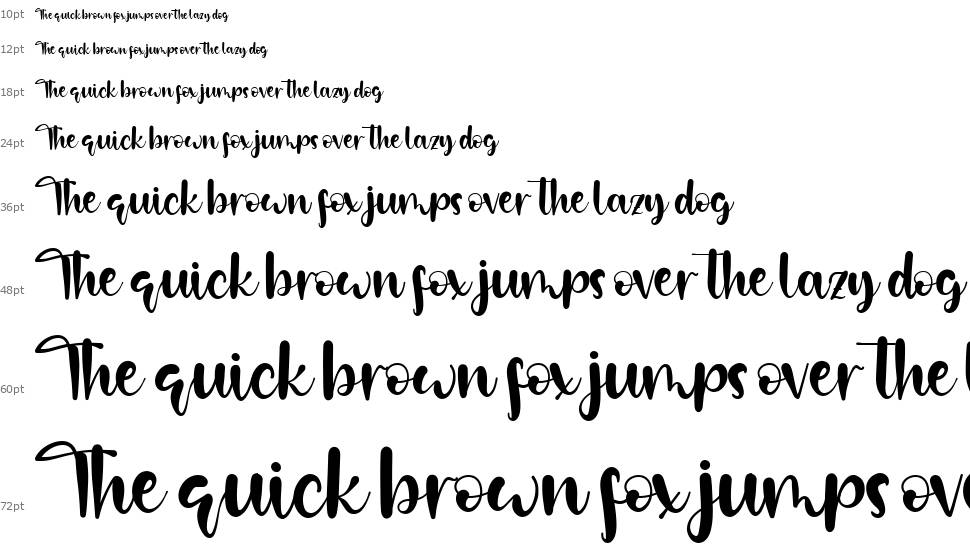 10pt The quick brown fox jumps over the lazy dog
12pt The quick brown fox jumps over the lazy dog
18pt The quick brown fox jumps over the lazy dog
24pt The quick brown fox jumps over the lazy dog
36pt The quick brown fox jumps over the lazy dog
48pt The quick brown fox jumps over the lazy dog
60pt The quick brown fox jumps over the l
72pt The quick brown fox jumps ov